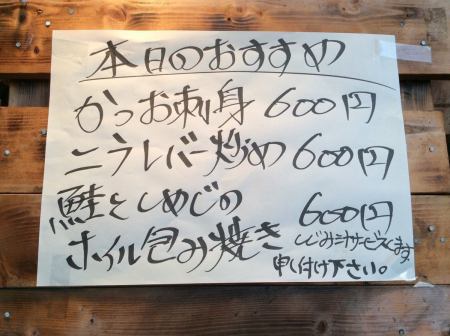 本日のおすすめ
かつお刺身 600円
ニラレバー炒め 600円
鮭としめじの
ホイル包み焼き 600円
しじみ汁サービスします
申し付け下さい。